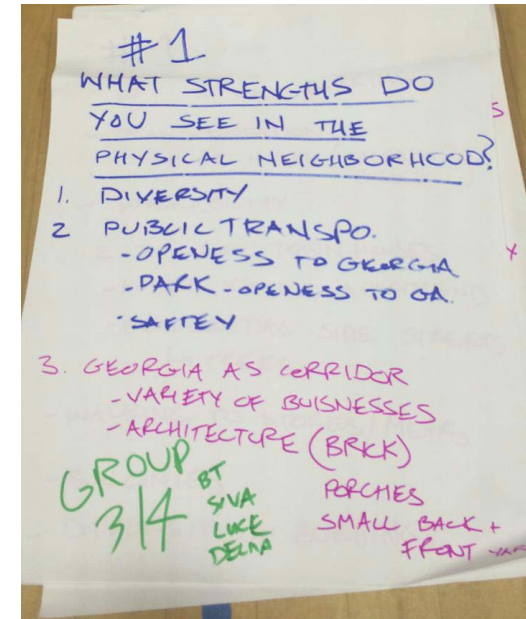 #1
WHAT STRENGTHS DO
YOU SEE IN THE
PHYSICAL NEIGHBORHOOD?
1. DIVERSITY
2 PUBLIC TRANSPO.
- OPENESS TO GEORGIA
- PARK - OPENESS TO GA.
- SAFTEY
3. GEORGIA AS CORRIDOR
- VARIETY OF BUISNESSES
- ARCHITECTURE (BRICK)
PORCHES
SMALL BACK +
FRONT
GROUP
3/4
BT
SIVA
LUKE